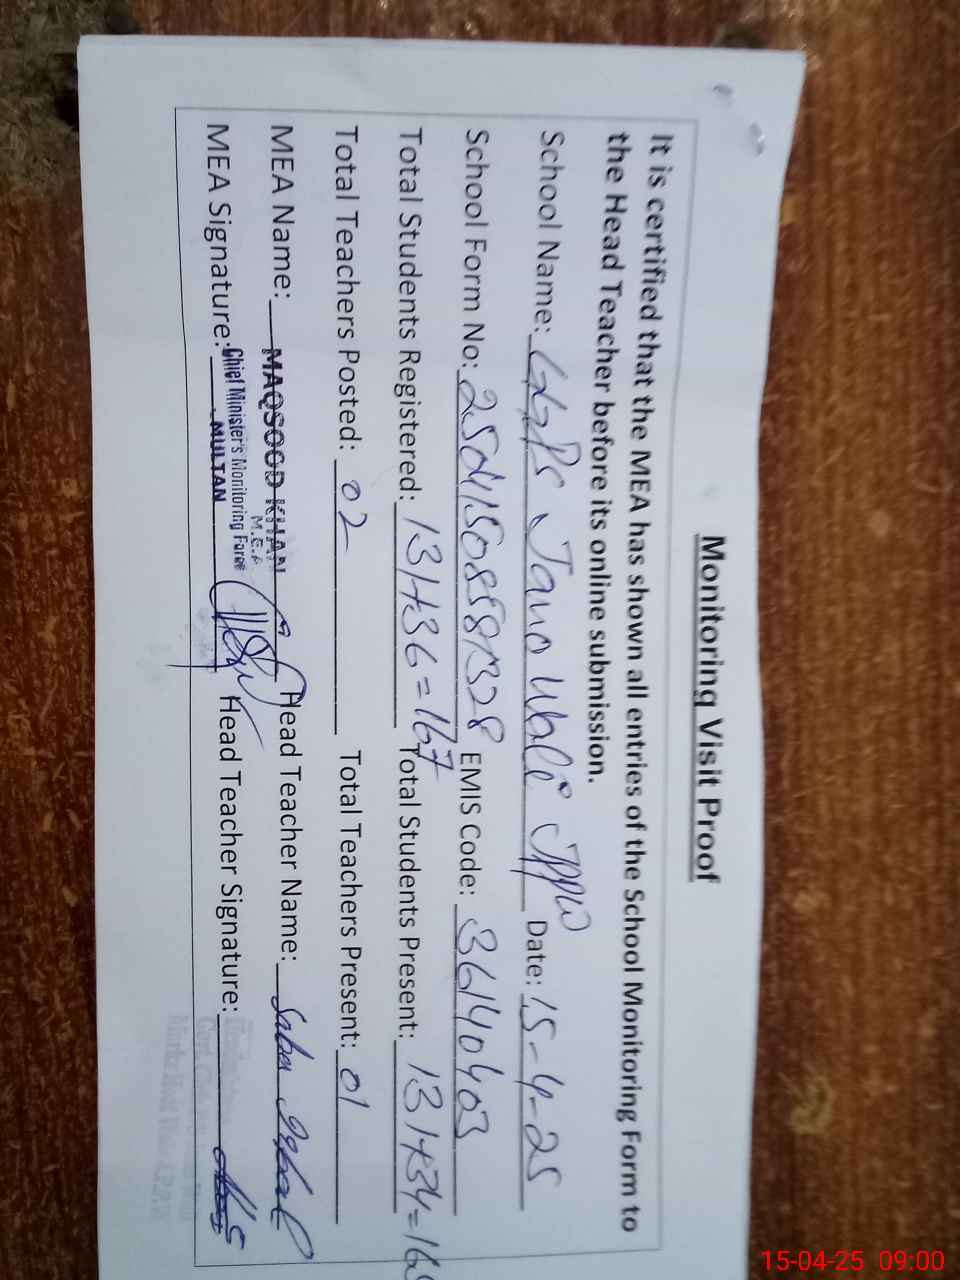 Monitoring Visit Proof
It is certified that the MEA has shown all entries of the School Monitoring Form to
the Head Teacher before its online submission.
School Name: GGPS Jano Wali JPPW Date: 15-4-25
School Form No: EMIS Code: 36140403
Total Students Registered: 131+36=167 Total Students Present: 131+34=16
Total Teachers Posted: 02 Total Teachers Present: 01
MEA Name: MAQSOOD KHAN Head Teacher Name: Saba Iqbal
Chief Minister's Monitoring Force
MEA Signature: MULTAN Head Teacher Signature:
15-04-25 09:00